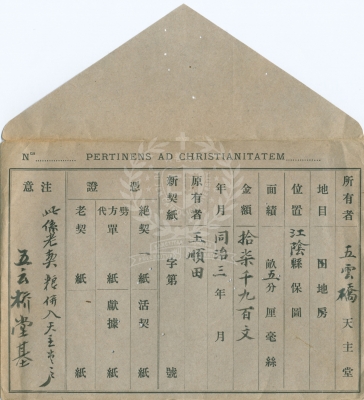 Nos PERTINENS AD CHRISTIANITATEM
所有者 五雲橋 天主堂
地目 田地房
位置 江陰縣 保 圖
面積 畝五分 厘 毫 絲
金額 拾柒千九百文
年月 同治三年 月
原有者 王順田
新契紙 字第 號
憑證
絕契 一紙 活契 紙
代方單 紙 獻據 紙
老契 紙 紙
注意
此係老契 粮併入天主堂
五云桥堂基